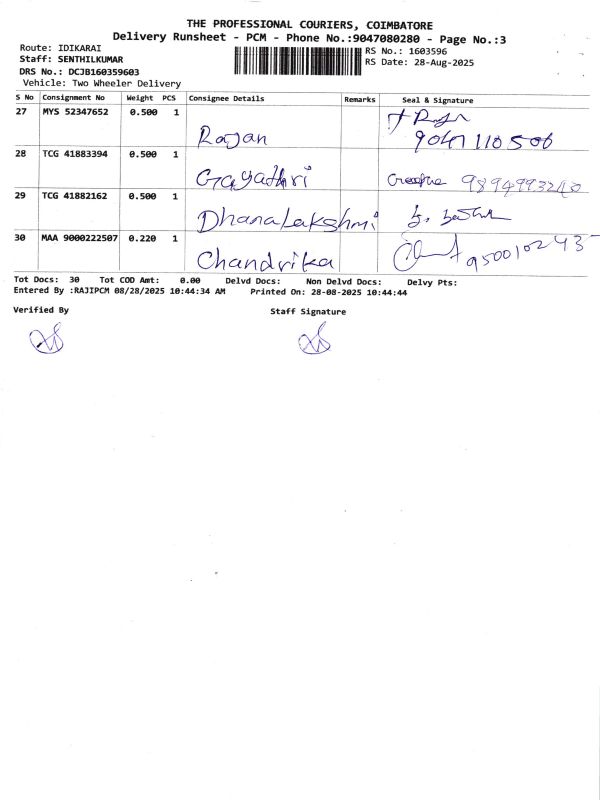 THE PROFESSIONAL COURIERS, COIMBATORE
Delivery Runsheet - PCM - Phone No.:9047080280 - Page No.:3
Route: IDIKARAI
RS No.: 1603596
Staff: SENTHILKUMAR
RS Date: 28-Aug-2025
DRS No.: DCJB160359603
Vehicle: Two Wheeler Delivery
S No Consignment No Weight PCS Consignee Details Remarks Seal & Signature
27 MYS 52347652 0.500 1 Rajan
28 TCG 41883394 0.500 1 Gayathri
29 TCG 41882162 0.500 1 Dhanalakshmi
30 MAA 9000222507 0.220 1 Chandrika
Tot Docs: 30 Tot COD Amt: 0.00 Delvd Docs: Non Delvd Docs: Delvy Pts:
Entered By :RAJIPCM 08/28/2025 10:44:34 AM Printed On: 28-08-2025 10:44:44
Verified By Staff Signature